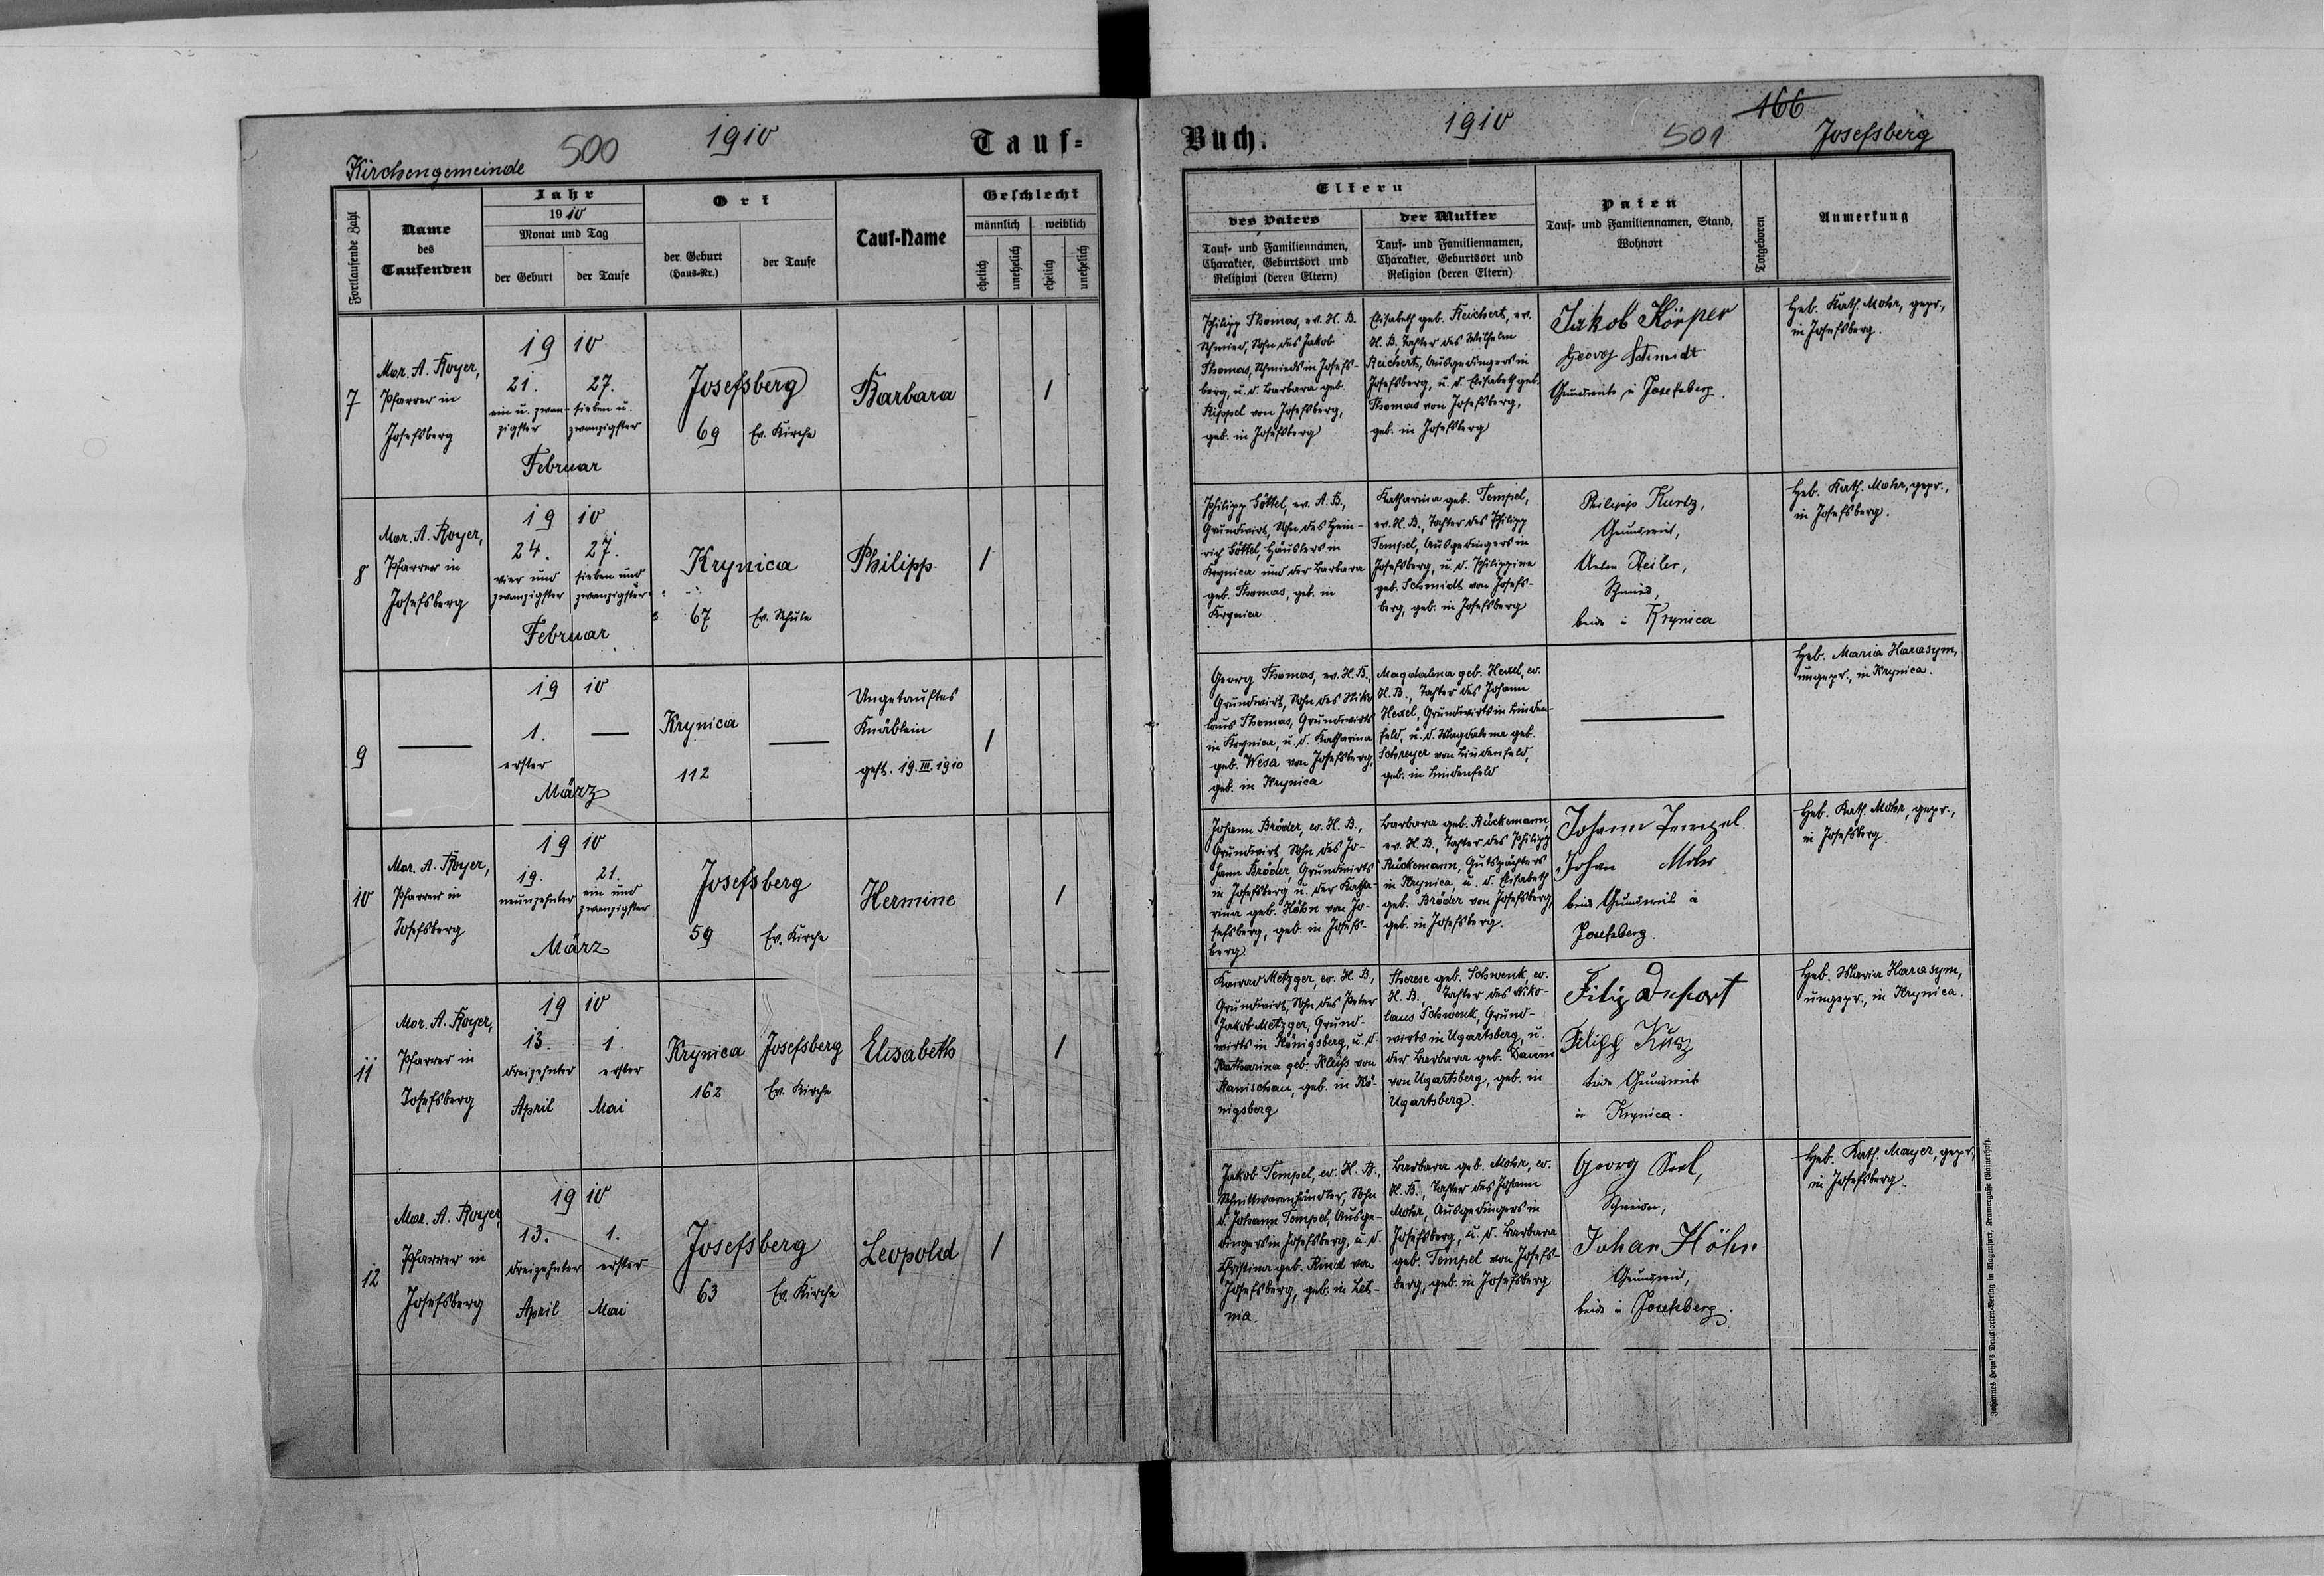 500
1910
Tauf-
Kirchengemeinde
Fortlaufende Zahl
Name
des
Taufenden
Jahr
1910
Monat und Tag
der Geburt
der Taufe
Ort
der Geburt
(Haus-Nr.)
der Taufe
Tauf-Name
Geschlecht
männlich
weiblich
ehelich
unehelich
ehelich
unehelich
7
Mor. A. Royer,
Pfarrer in
Josefsberg
1910
21.
ein u. zwan-
zigster
27.
sieben u.
zwanzigster
Februar
Josefsberg
69
Ev. Kirche
Barbara
1
8
Mor. A. Royer,
Pfarrer in
Josefsberg
1910
24.
vier und
zwanzigster
27.
sieben und
zwanzigster
Februar
Krynica
67
Ev. Schule
Philipp
1
9
1910
1.
erster
März
Krynica
112
Ungetauftes
Knäblein
gest. 19. III. 1910
1
10
Mor. A. Royer,
Pfarrer in
Josefsberg
1910
19.
neunzehnter
21.
ein und
zwanzigster
März
Josefsberg
59
Ev. Kirche
Hermine
1
11
Mor. A. Royer,
Pfarrer in
Josefsberg
1910
13.
dreizehnter
April
1.
erster
Mai
Krynica
162
Josefsberg
Ev. Kirche
Elisabeth
1
12
Mor. A. Royer,
Pfarrer in
Josefsberg
1910
13.
dreizehnter
April
1.
erster
Mai
Josefsberg
63
Ev. Kirche
Leopold
1
Buch.
1910
501
166
Josefsberg
Eltern
des Vaters
Tauf- und Familiennamen,
Charakter, Geburtsort und
Religion (deren Eltern)
der Mutter
Tauf- und Familiennamen,
Charakter, Geburtsort und
Religion (deren Eltern)
Paten
Tauf- und Familiennamen, Stand,
Wohnort
Totgeboren
Anmerkung
Philipp Thomas, ev. H. B.
Schmied, Sohn des Jakob
Thomas, Schmieds in Josefs-
berg, u. d. Barbara geb.
Rippel von Josefsberg,
geb. in Josefsberg
Elisabeth geb. Reichert, ev.
H. B. Tochter des Wilhelm
Reichert, Ausgedingers in
Josefsberg, u. d. Elisabeth geb.
Thomas von Josefsberg,
geb. in Josefsberg
Jakob Körper
Georg Schmidt
Grundwirte in Josefsberg.
Heb. Kath. Mohr, gepr.,
in Josefsberg.
Philipp Göttel, ev. A. B.,
Grundwirt, Sohn des Hein-
rich Göttel, Häuslers in
Krynica und der Barbara
geb. Thomas, geb. in
Krynica
Katharina geb. Tempel,
ev. H. B., Tochter des Philipp
Tempel, Ausgedingers in
Josefsberg, u. d. Philippine
geb. Schmidt von Josefs-
berg, geb. in Josefsberg
Philipp Kurtz,
Grundwirt,
Schmied,
beide in Krynica
Heb. Kath. Mohr, gepr.,
in Josefsberg.
Georg Thomas, ev. H. B.,
Grundwirt, Sohn des Niko-
laus Thomas, Grundwirts
in Krynica, u. d. Katharina
geb. Wesa von Josefsberg,
geb. in Krynica
Magdalena geb. Hexel, ev.
H. B., Tochter des Johann
Hexel, Grundwirts in Linden-
feld, u. d. Magdalena geb.
Schreyer von Lindenfeld,
geb. in Lindenfeld
Heb. Maria Harasym,
ungepr., in Krynica.
Johann Bröder, ev. H. B.,
Grundwirt, Sohn des Jo-
hann Bröder, Grundwirts
in Josefsberg u. der Katha-
rina geb. Höhn von Jo-
sefsberg, geb. in Josefs-
berg
Barbara geb. Rückemann,
ev. H. B., Tochter des Philipp
Rückemann, Gutspächters
in Krynica, u. d. Elisabeth
geb. Bröder von Josefsberg,
geb. in Josefsberg.
Johann Tempel.
Johan Mohr
beide Grundwirte in
Josefsberg.
Heb. Kath. Mohr, gepr.,
in Josefsberg.
Konrad Metzger, ev. H. B.,
Grundwirt, Sohn des Peter
Jakob Metzger, Grund-
wirts in Königsberg, u. d.
Katharina geb. von
Ranischau, geb. in Kö-
nigsberg
Therese geb. Schwenk, ev.
H. B., Tochter des Niko-
laus Schwenk, Grund-
wirts in Ugartsberg, u.
der Barbara geb. Daum
von Ugartsberg, geb. in
Ugartsberg.
Filip
Filipp Kurz
beide Grundwirte
in Krynica.
Heb. Maria Harasym,
ungepr., in Krynica.
Jakob Tempel, ev. H. B.,
Schnittwarenhändler, Sohn
d. Johann Tempel, Ausge-
dingers in Josefsberg, u. d.
Christina geb. Rind von
Josefsberg, geb. in Let-
nia.
Barbara geb. Mohr, ev.
H. B., Tochter des Johann
Mohr, Ausgedingers in
Josefsberg, u. d. Barbara
geb. Tempel von Josefs-
berg, geb. in Josefsberg
Georg Seel,
Schneider,
Johan Höhn
Grundwirt,
beide in Josefsberg.
Heb. Kath. Mayer, gepr.,
in Josefsberg.
Johannes Heyn's Drucksorten-Verlag in Klagenfurt, Kramergasse (Rainerhof).